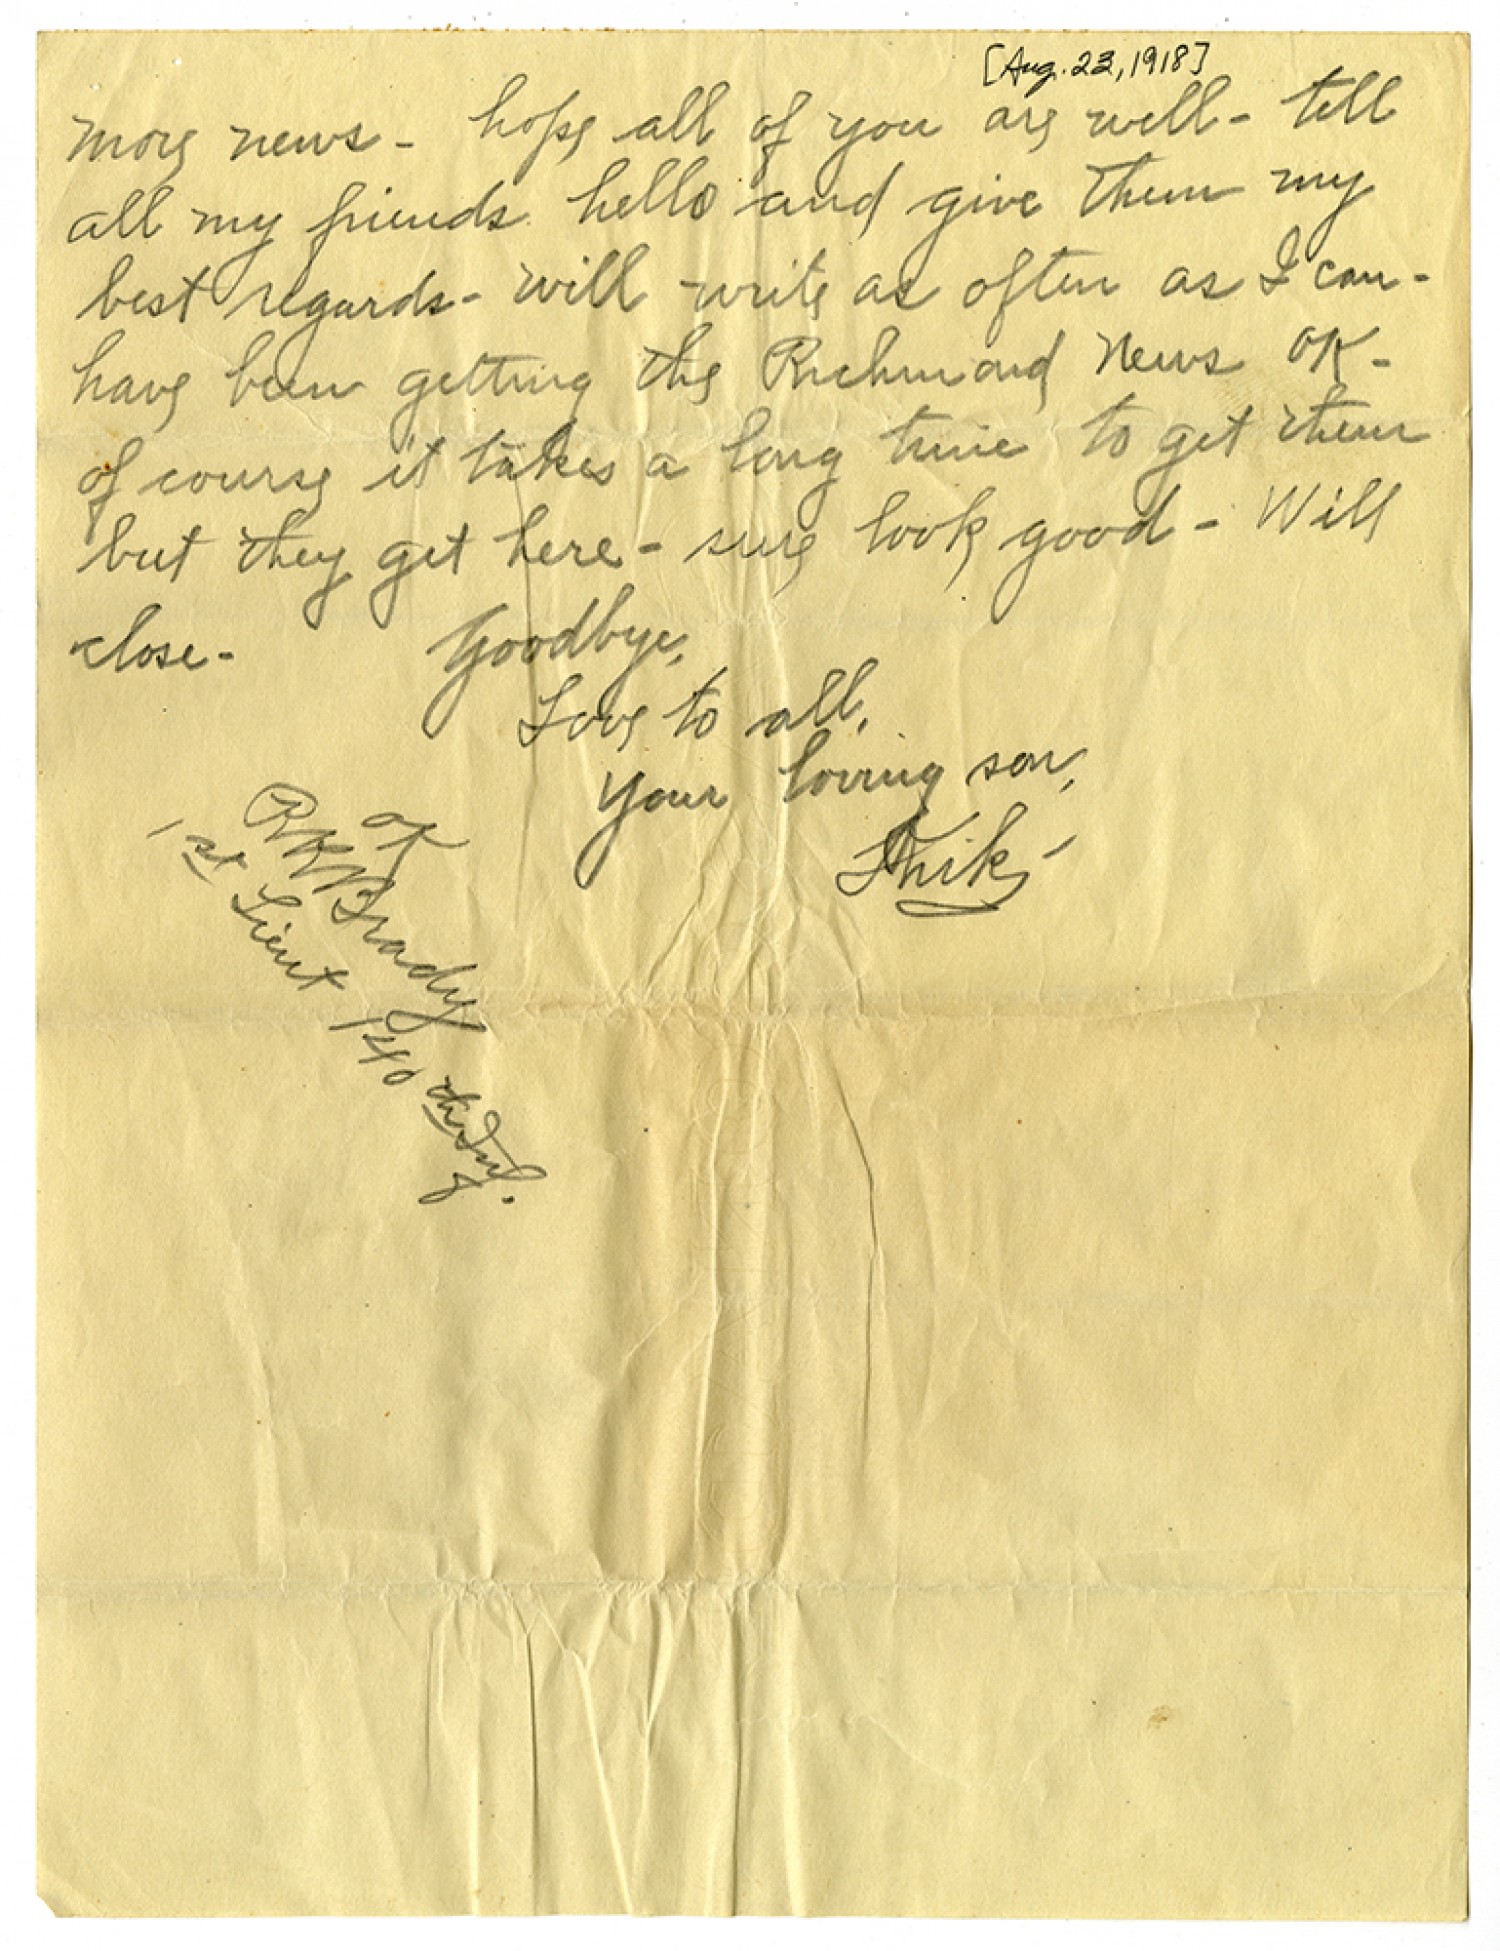 [Aug. 23, 1918]
more news - hope all of you are well - tell
all my friends hello and give them my
best regards - will write as often as I can -
have been getting the Richmond News OK -
of course it takes a long time to get them
but they get here - sure look good - Will
close - Goodbye,
Love to all,
Your loving son,
OK
R R Brady
1st Lieut 140th Inf.